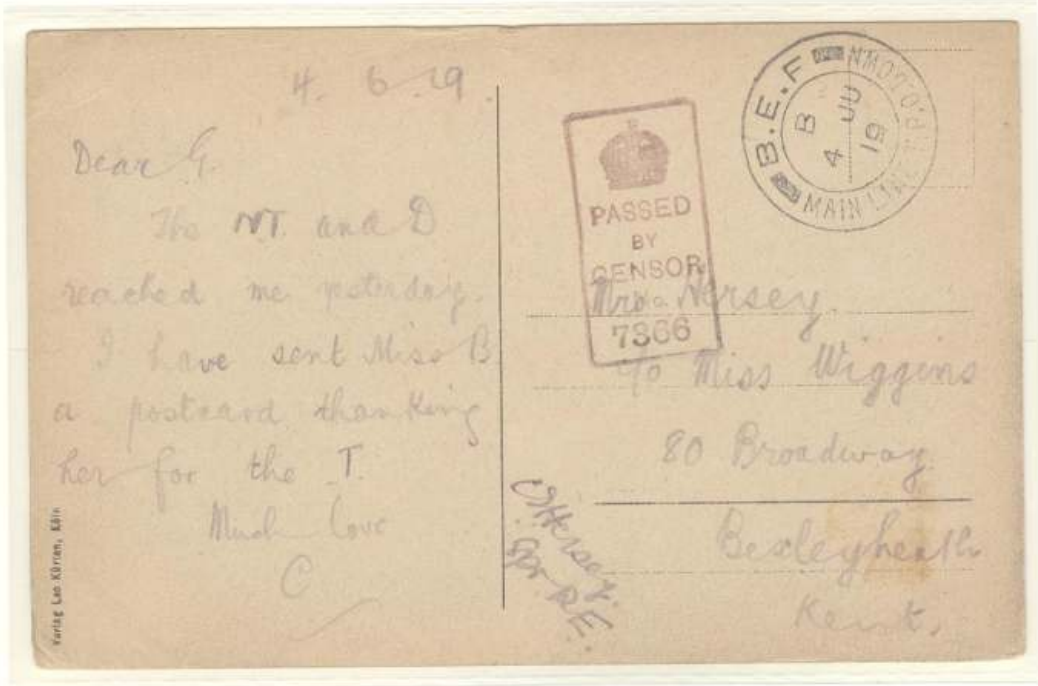 4. 6. 19.
Dear G.
The NT. and D
reached me yesterday.
I have sent Miss B
a postcard thanking
her for the T.
Much love
C
Verlag Leo Kürten, Köln
PASSED
BY
CENSOR
No.
7366
B.E.F
MAIN LINE T.P.O. DOWN
B
4 JU
19
Mrs Hersey.
c/o Miss Wiggins
80 Broadway
Bexleyheath
Kent.
Hersey.
Spr. R.E.